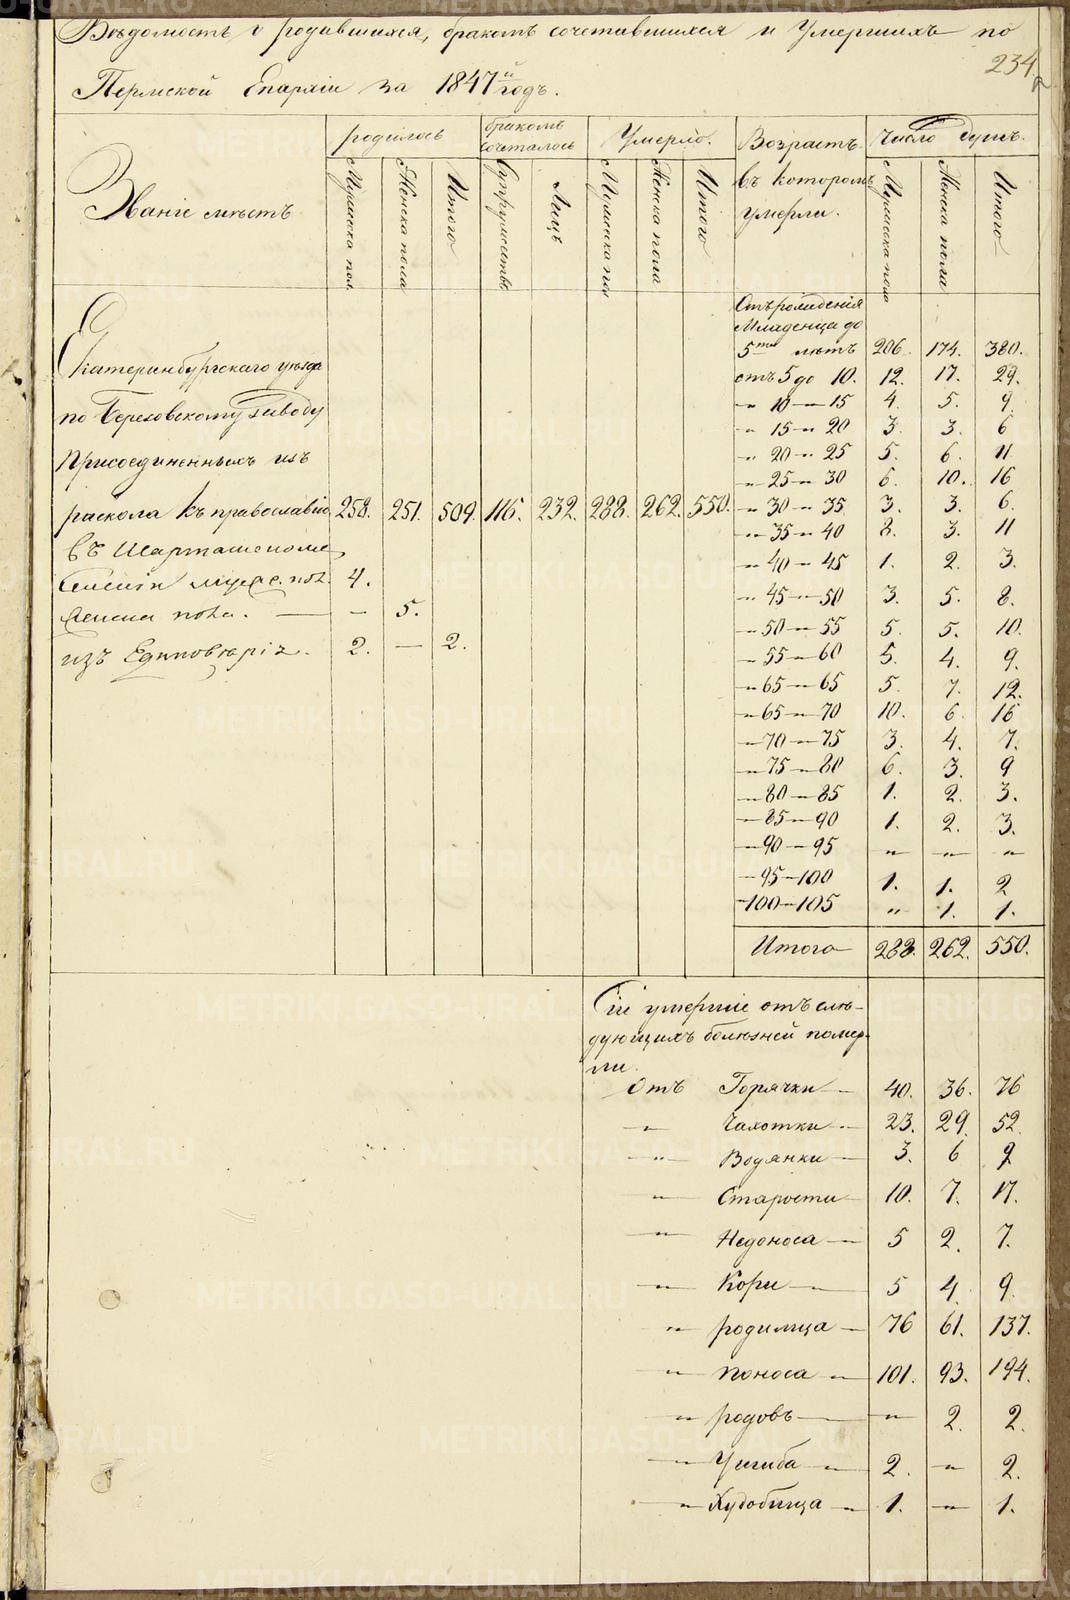 Вѣдомость о родившихся, бракомъ сочетавшихся и Умершихъ по
234
Пермской Епархіи за 1847й годъ.
Званіе мѣстъ
родилось
Мужеска пол.
Женска пола
Итого
бракомъ сочеталось
Супружествъ
Лицъ
Умерло.
Мужеска пол
Женска пола
Итого
Возрастъ въ которомъ умерли.
Число душъ.
Мужеска пола
Женска пола
Итого
Екатеринбургскаго уѣзда
по Березовскому заводу
присоединенныхъ изъ
раскола къ православію 258. 251. 509. 116. 232. 288. 262. 550.
въ Шарташскомъ
селеніи мужес. пол. 4.
женска пола. — - 5.
изъ Единовѣрія. 2. — 2.
Отъ рожденія
Младенца до
5ти лѣтъ 206. 174. 380.
отъ 5 до 10. 12. 17. 29.
„ 10 — 15 4. 5. 9.
„ 15 — „ 20 3. 3. 6
„ 20 — „ 25 5. 6. 11
„ 25 — „ 30 6. 10. 16
„ 30 — „ 35 3. 3. 6.
„ 35 — „ 40 8. 3. 11
„ 40 — „ 45 1. 2. 3.
„ 45 — „ 50 3. 5. 8.
„ 50 — „ 55 5. 5. 10.
„ 55 — „ 60 5. 4. 9.
„ 65 — „ 65 5. 7. 12.
„ 65 — „ 70 10. 6. 16
„ 70 — „ 75 3. 4. 7.
„ 75 — „ 80 6. 3. 9
„ 80 — „ 85 1. 2. 3.
„ 85 — „ 90 1. 2. 3.
„ 90 — „ 95 „ „ „
„ 95 — 100 1. 1. 2
„ 100 — 105 „ 1. 1.
Итого 288. 262. 550.
Сіи умершіе отъ слѣ-
дующихъ болѣзней помер-
ли.
Отъ Горячки — 40. 36. 76
„ Чахотки — 23. 29. 52.
„ Водянки — 3. 6 9
„ Старости — 10. 7. 17.
„ Недоноса — 5 2. 7.
„ Кори — 5 4. 9.
„ родимца — 76 61. 137.
„ поноса — 101. 93. 194.
„ родовъ — „ 2. 2.
„ Ушиба — 2. „ 2.
„ Худобища — 1. „ 1.
METRIKI.GASO-URAL.RU